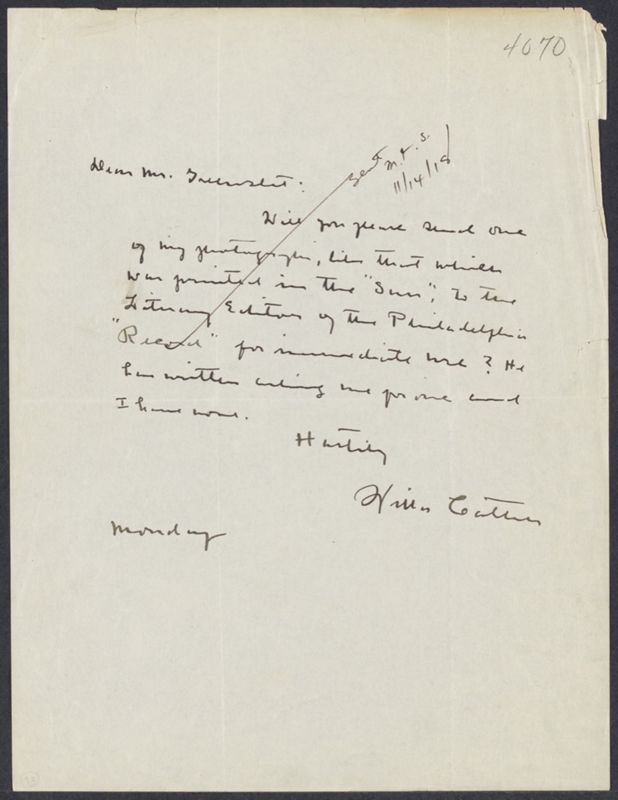 4070
Sent
M. & S.
11/14/18
Dear Mr. Greenslet:
Will you please send one
of my photographs, like that which
was printed in the "Sun", to the
Literary Editor of the Philadelphia
"Record" for immediate use? He
has written asking me for one and
I have none.
Hastily
Willa Cather
Monday